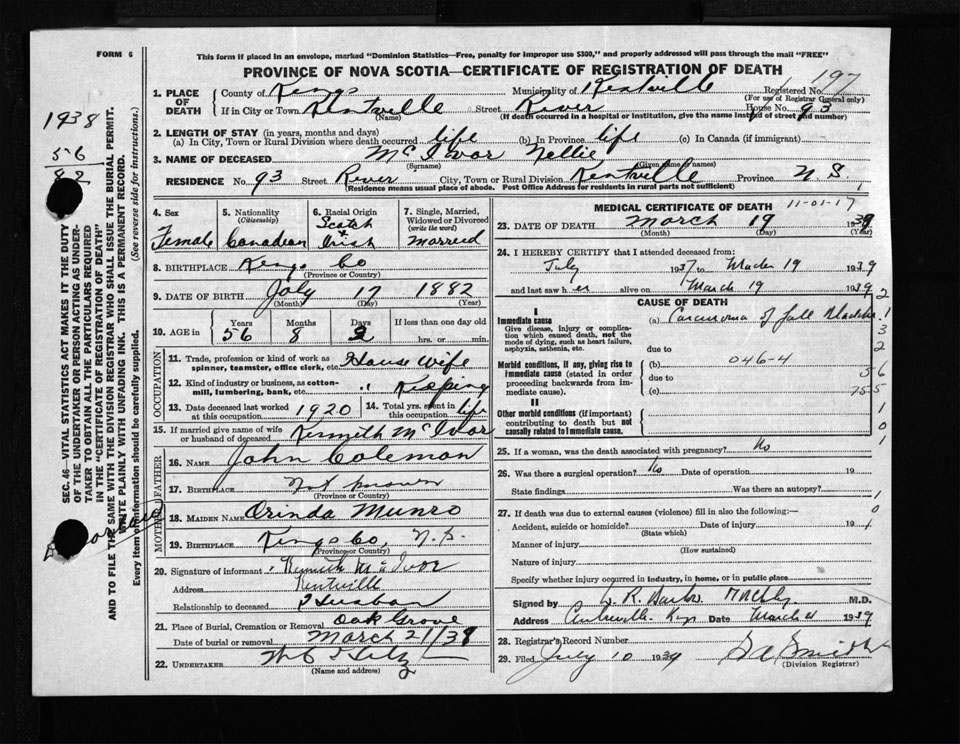 FORM 6
This form if placed in an envelope, marked "Dominion Statistics—Free, penalty for improper use $300," and properly addressed will pass through the mail "FREE"
PROVINCE OF NOVA SCOTIA—CERTIFICATE OF REGISTRATION OF DEATH
197
1. PLACE OF DEATH County of Kings Municipality of Kentville Registered No.
(For use of Registrar General only)
If in City or Town Kentville Street River House No. 93
(Name) (If death occurred in a hospital or institution, give the name instead of street and number)
2. LENGTH OF STAY (in years, months and days)
(a) In City, Town or Rural Division where death occurred life (b) In Province life (c) In Canada (if immigrant)
3. NAME OF DECEASED McIvor Nellie
(Surname) (Given name or names)
RESIDENCE No. 93 Street River City, Town or Rural Division Kentville Province N S.
(Residence means usual place of abode. Post Office Address for residents in rural parts not sufficient)
1938
56
82
SEC. 46—VITAL STATISTICS ACT MAKES IT THE DUTY OF THE UNDERTAKER OR PERSON ACTING AS UNDERTAKER TO OBTAIN ALL THE PARTICULARS REQUIRED IN THE "CERTIFICATE OF REGISTRATION OF DEATH" AND TO FILE THE SAME WITH THE DIVISION REGISTRAR WHO SHALL ISSUE THE BURIAL PERMIT.
WRITE PLAINLY WITH UNFADING INK. THIS IS A PERMANENT RECORD.
Every item of information should be carefully supplied. (See reverse side for instructions.)
4. Sex
Female
5. Nationality
(Citizenship)
Canadian
6. Racial Origin
Scotch
+
Irish
7. Single, Married, Widowed or Divorced
(write the word)
Married
8. BIRTHPLACE Kings Co
(Province or Country)
9. DATE OF BIRTH July 17 1882
(Month) (Day) (Year)
10. AGE in Years Months Days If less than one day old
56 8 2 hrs. or min.
OCCUPATION
11. Trade, profession or kind of work as spinner, teamster, office clerk, etc. House wife
12. Kind of industry or business, as cotton-mill, lumbering, bank, etc. " Keeping
13. Date deceased last worked at this occupation 1920 14. Total yrs. spent in this occupation life
15. If married give name of wife or husband of deceased Kenneth McIvor
FATHER
16. NAME John Coleman
17. BIRTHPLACE Not known
(Province or Country)
MOTHER
18. MAIDEN NAME Orinda Munro
19. BIRTHPLACE Kings Co, N.S.
(Province or Country)
20. Signature of informant Kenneth McIvor
Address Kentville
Relationship to deceased Husban
21. Place of Burial, Cremation or Removal Oak Grove
Date of burial or removal March 21/39
22. UNDERTAKER
(Name and address)
MEDICAL CERTIFICATE OF DEATH 11-01-17
23. DATE OF DEATH March 19 1939
(Month) (Day) (Year)
24. I HEREBY CERTIFY that I attended deceased from:
July 1937 to March 19 1939
and last saw her alive on March 19 1939
CAUSE OF DEATH
I
Immediate cause
Give disease, injury or complication which caused death, not the mode of dying, such as heart failure, asphyxia, asthenia, etc.
(a) Carcinoma of Gall Bladder
due to
Morbid conditions, if any, giving rise to immediate cause (stated in order proceeding backwards from immediate cause).
(b) 046-4
due to
(c)
II
Other morbid conditions (if important) contributing to death but not causally related to immediate cause.
25. If a woman, was the death associated with pregnancy? No
26. Was there a surgical operation? No Date of operation 19
State findings Was there an autopsy?
27. If death was due to external causes (violence) fill in also the following:—
Accident, suicide or homicide? Date of injury 19
(State which)
Manner of injury
(How sustained)
Nature of injury
Specify whether injury occurred in industry, in home, or in public place
Signed by M.D.
Address Date March 1939
28. Registrar's Record Number
29. Filed July 10 1939 Smith
(Division Registrar)